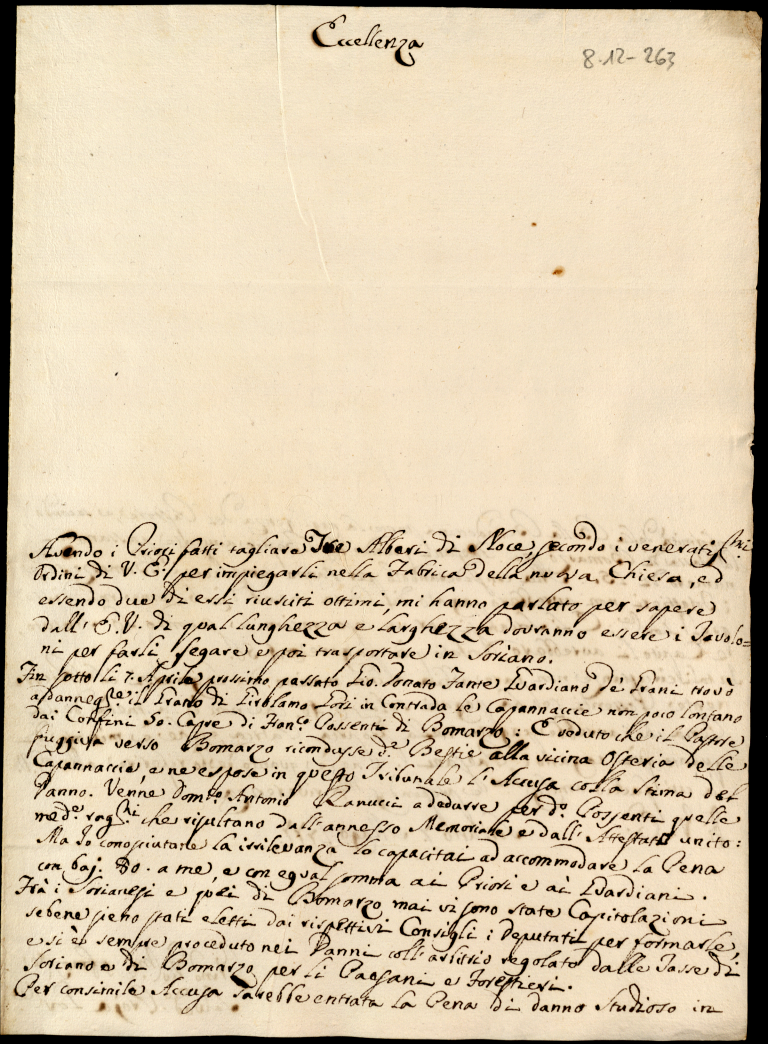 Eccellenza
8.12-263
Avendo i Priori fatti tagliare Tre Alberi di Noce, secondo i veneratiss.mi
Ordini di V. E. per impiegarli nella Fabrica della nuova Chiesa, ed
essendo due di essi riusciti ottimi, mi hanno parlato per sapere
dall' E. V. di qual lunghezza e larghezza dovranno essere i Tavolo=
ni per farli segare e poi trasportare in Soriano.
Fin sotto li 7. Aprile prossimo passato Gio. Donato Fante Guardiano de' Grani trovò
a danneg.re il Grano di Girolamo in Contrada le Capannaccie non poco lontano
dai Confini 50. Capre di Fran.co Possenti di Bomarzo: E veduto che il Pastore
fuggiva verso Bomarzo ricondusse d.e Bestie alla vicina Osteria delle
Capannaccie, e ne espose in questo Tribunale l'Accusa colla Stima del
Danno. Venne Dom.co Antonio Ranucci a dedurre per d.o Possenti quelle
med.e rag.ni che risultano dall'annesso Memoriale e dall'Attestato unito:
Ma Io conosciutane la irrilevanza lo capacitai ad accommodare la Pena
con baj. 80. a me, e con egual somma ai Priori e ai Guardiani.
Frà i Sorianesi e quei di Bomarzo mai vi sono state Capitolazioni
sebene sieno stati eletti dai rispettivi Consigli i Deputati per formarle,
e si è sempre proceduto nei Danni coll'arbitrio regolato dalle Tasse di
Soriano e di Bomarzo per li Paesani e Forestieri.
Per consimile Accusa sarebbe entrata la Pena di danno Studioso in